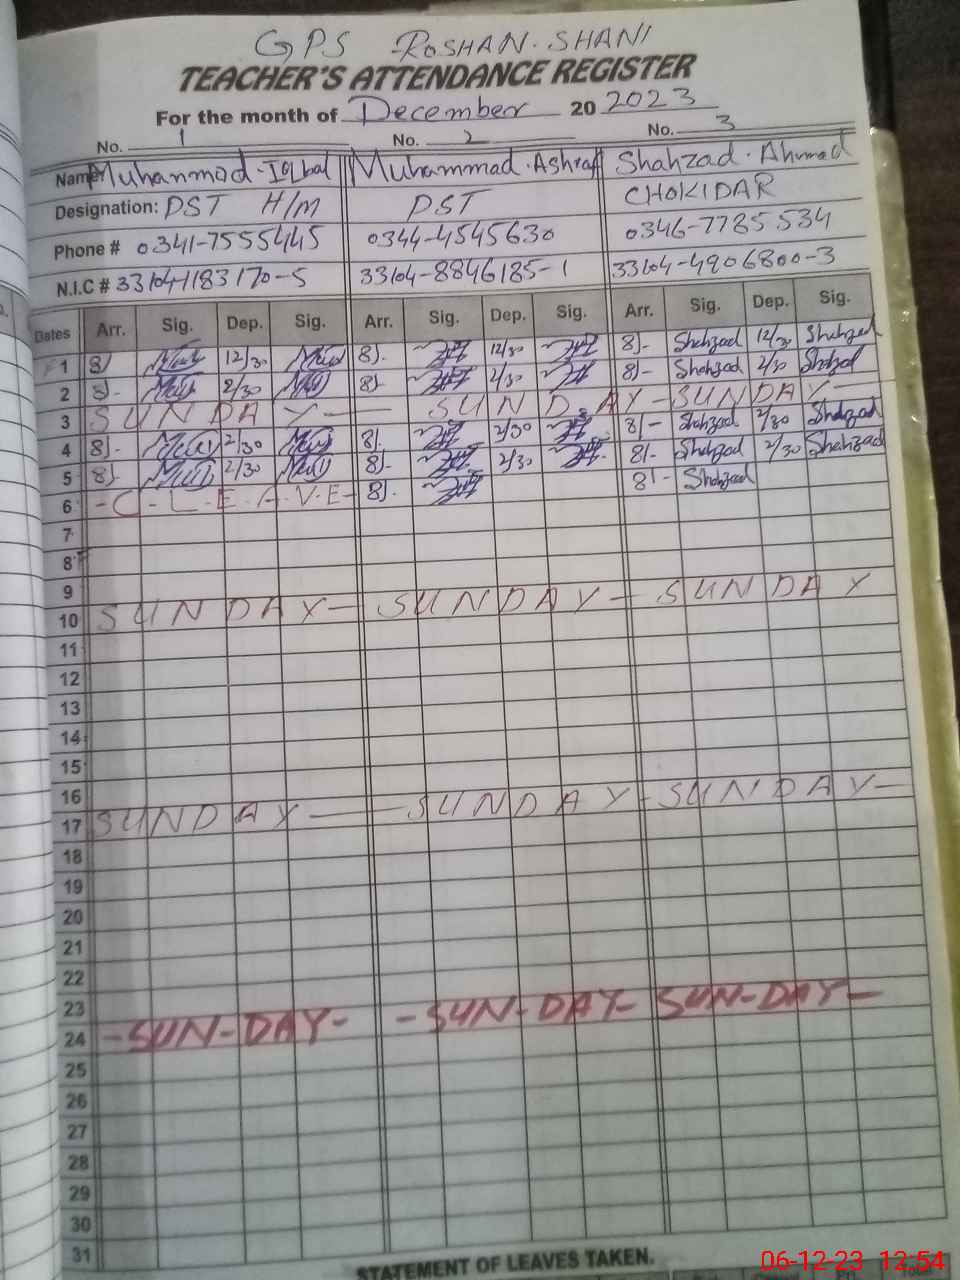 GPS ROSHAN. SHANI
TEACHER'S ATTENDANCE REGISTER
For the month of December 20 2023
No. 1 No. 2 No. 3
Name Muhammad-Iqbal Muhammad-Ashraf Shahzad-Ahmad
Designation: PST H/M PST CHOKIDAR
Phone # 0341-7555445 0344-4545630 0346-7785534
N.I.C # 33104-1183170-5 33104-8846185-1 33104-4906800-3
Dates Arr. Sig. Dep. Sig. Arr. Sig. Dep. Sig. Arr. Sig. Dep. Sig.
1 8/ 12/30 8/- 12/30 8/- Shahzad 12/30 Shahzad
2 8/- 2/30 8/- 2/30 8/- Shahzad 2/30 Shahzad
3 SUNDAY- SUNDAY- SUNDAY-
4 8/- 2/30 8/- 2/30 8/- Shahzad 2/30 Shahzad
5 8/- 2/30 8/- 2/30 8/- Shahzad 2/30 Shahzad
6 -C-L-E-A-V-E- 8/- 8/- Shahzad
7
8
9
10 SUNDAY- SUNDAY- SUNDAY
11
12
13
14
15
16
17 SUNDAY- SUNDAY- SUNDAY-
18
19
20
21
22
23
24 -SUN-DAY- -SUN-DAY- SUN-DAY-
25
26
27
28
29
30
31
STATEMENT OF LEAVES TAKEN.
06-12-23 12:54